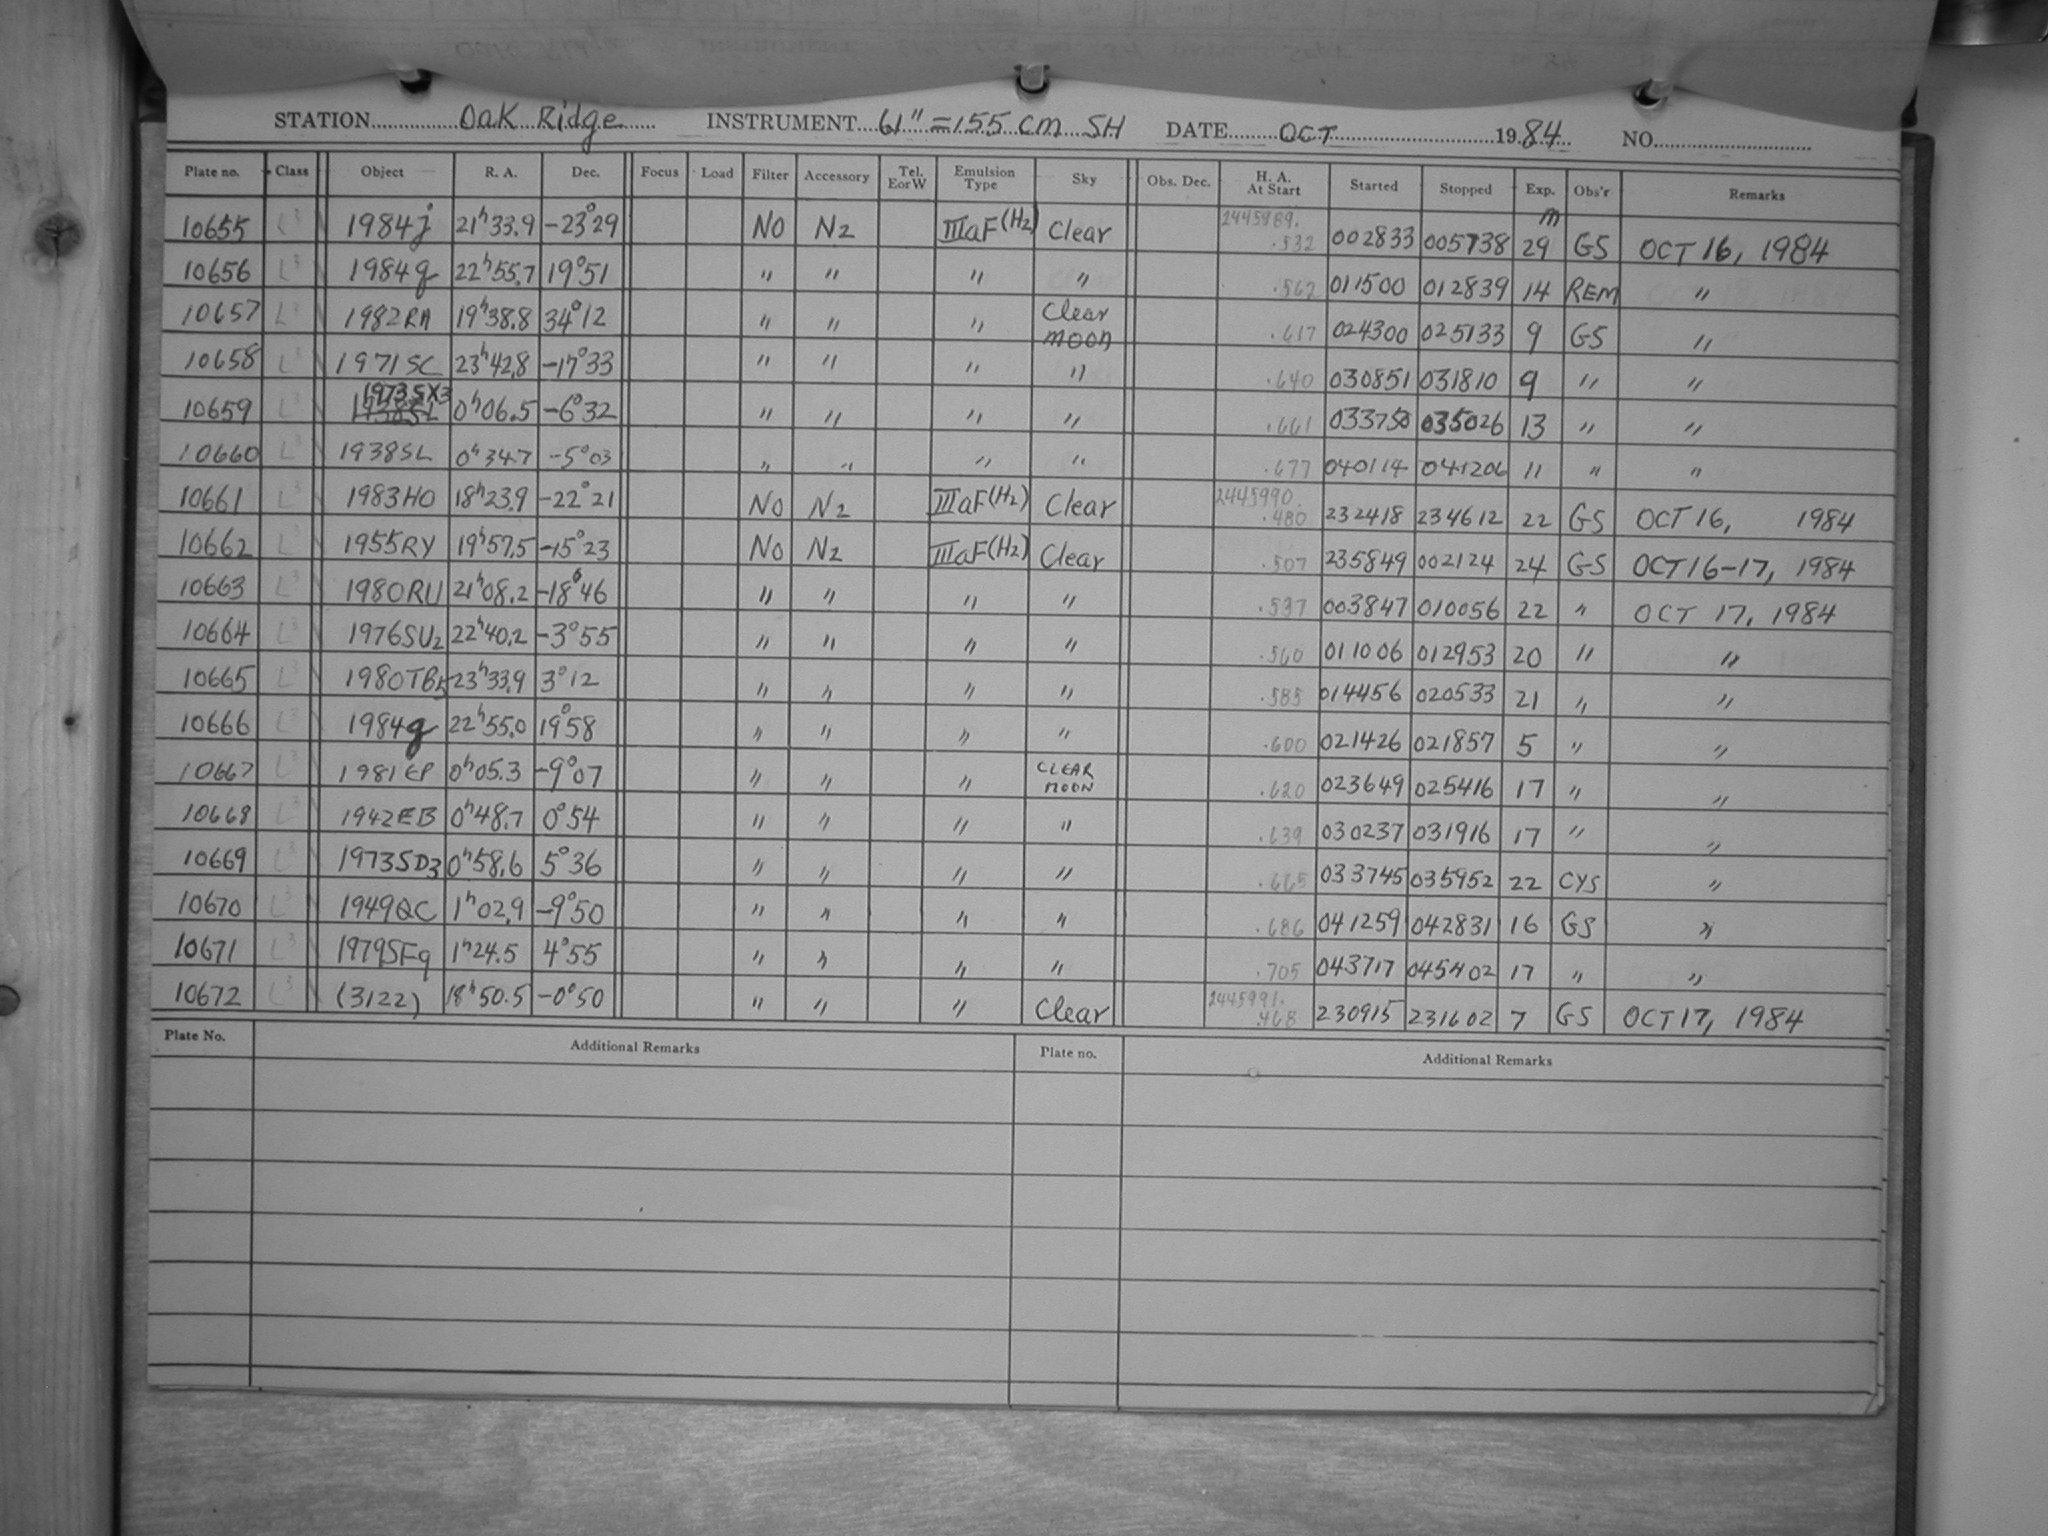 STATION Oak Ridge INSTRUMENT 61" = 155 cm SH DATE OCT 1984 NO.
Plate no. Class Object R. A. Dec. Focus Load Filter Accessory Tel. E or W Emulsion Type Sky Obs. Dec. H. A. At Start Started Stopped Exp. Obs'r Remarks
10655 L3 1984j 21h33.9 -23°29 NO N2 IIIaF(H2) Clear 2445989. .532 002833 005738 29m GS OCT 16, 1984
10656 L3 1984g 22h55.7 19°51 " " " " .562 011500 012839 14 REM "
10657 L3 1982RA 19h38.8 34°12 " " " Clear moon .617 024300 025133 9 GS "
10658 L3 1971SC 23h42.8 -17°33 " " " " .640 030851 031810 9 " "
10659 L3 1973SX3 1938SL 0h06.5 -6°32 " " " " .661 033750 035026 13 " "
10660 L3 1938SL 0h34.7 -5°03 " " " " .677 040114 041206 11 " "
10661 L3 1983HO 18h23.9 -22°21 NO N2 IIIaF(H2) Clear 2445990. .480 232418 234612 22 GS OCT 16, 1984
10662 L3 1955RY 19h57.5 -15°23 NO N2 IIIaF(H2) Clear .507 235849 002124 24 GS OCT 16-17, 1984
10663 L3 1980RU 21h08.2 -18°46 " " " " .537 003847 010056 22 " OCT 17, 1984
10664 L3 1976SU2 22h40.2 -3°55 " " " " .560 011006 012953 20 " "
10665 L3 1980TB5 23h33.9 3°12 " " " " .585 014456 020533 21 " "
10666 L3 1984g 22h55.0 19°58 " " " " .600 021426 021857 5 " "
10667 L3 1981EP 0h05.3 -9°07 " " " CLEAR MOON .620 023649 025416 17 " "
10668 L3 1942EB 0h48.7 0°54 " " " " .639 030237 031916 17 " "
10669 L3 1973SD3 0h58.6 5°36 " " " " .665 033745 035952 22 CYS "
10670 L3 1949QC 1h02.9 -9°50 " " " " .686 041259 042831 16 GS "
10671 L3 1979SF9 1h24.5 4°55 " " " " .705 043717 045402 17 " "
10672 L3 (3122) 18h50.5 -0°50 " " " Clear 2445991. .468 230915 231602 7 GS OCT 17, 1984
Plate No. Additional Remarks Plate no. Additional Remarks